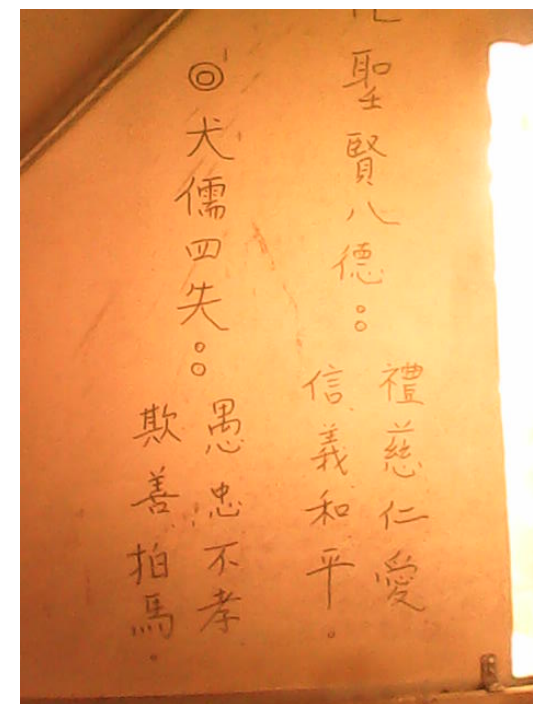 聖賢八德：
禮慈仁愛
信義和平。
◎犬儒四失：
愚忠不孝
欺善拍馬。